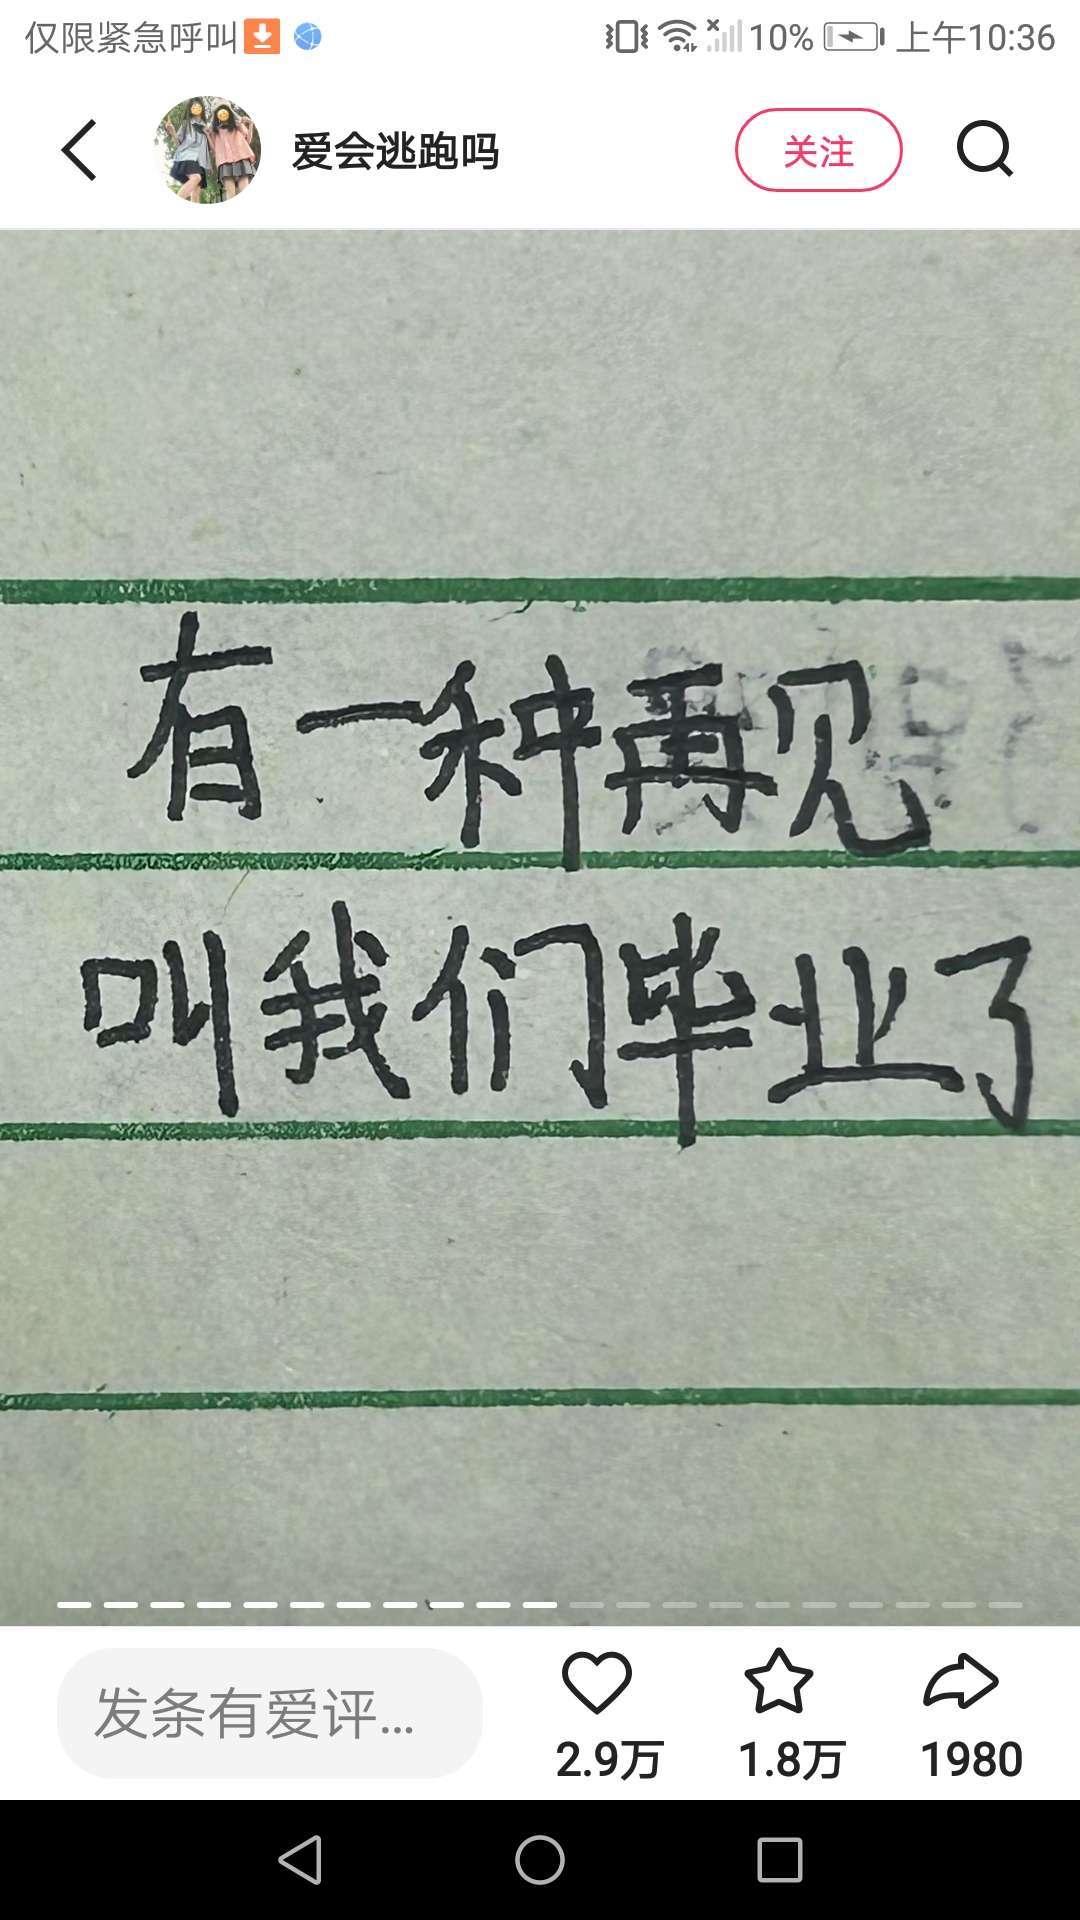 仅限紧急呼叫 10% 上午10:36
爱会逃跑吗 关注
有一种再见
叫我们毕业了
发条有爱评...
2.9万 1.8万 1980